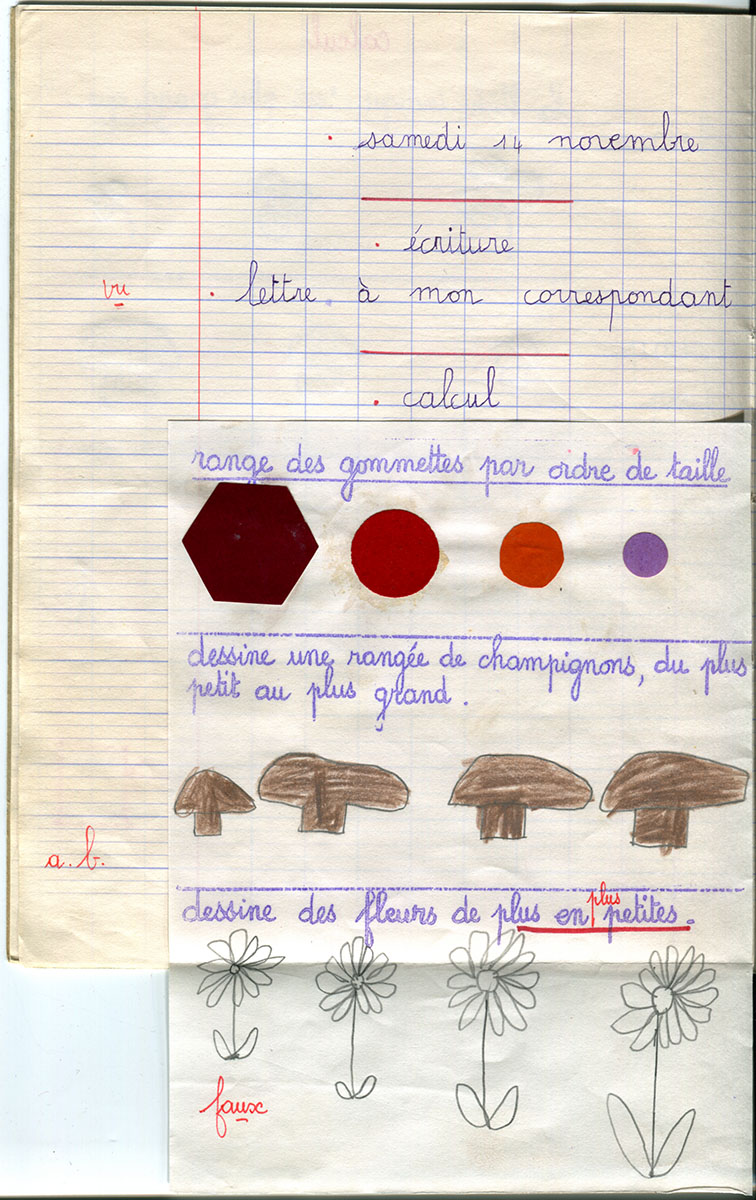 calcul
samedi 14 novembre
écriture
vu
lettre à mon correspondant
calcul
range des gommettes par ordre de taille
dessine une rangée de champignons, du plus
petit au plus grand.
a.b.
plus
dessine des fleurs de plus en petites.
faux